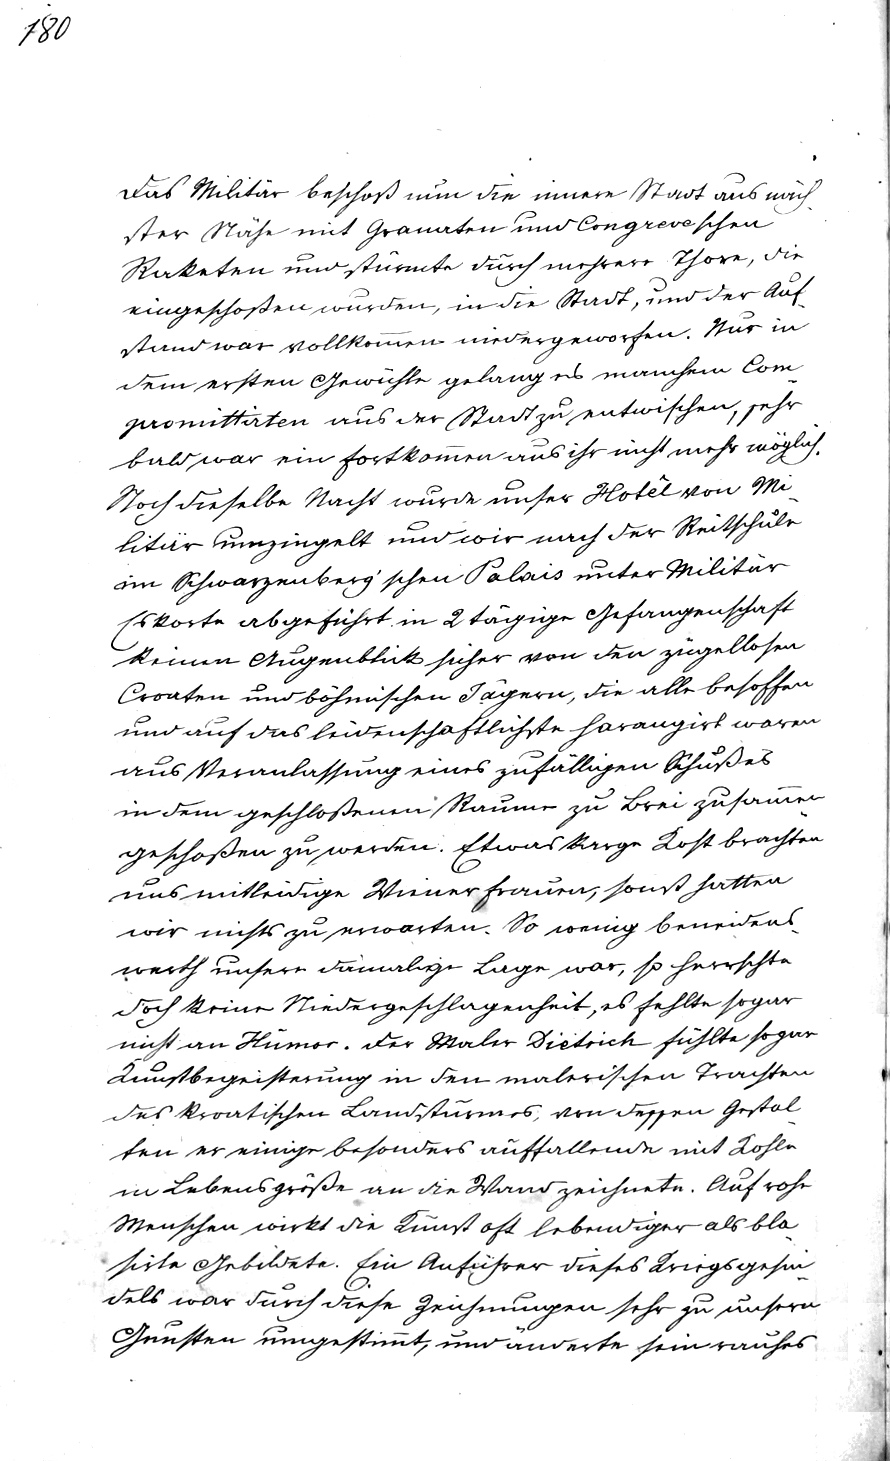 180
Das Militär beschoß nun die innere Stadt aus näch-
ster Nähe mit Granaten und Congreveschen
Raketen und stürmte durch mehrere Thore, die
eingeschoßen wurden, in die Stadt, und der Auf-
stand war vollkom̄en niedergeworfen. Nur in
dem ersten Gewühle gelang es manchem Com-
promittirten aus der Stadt zu entwischen, sehr
bald war ein Fortkom̄en aus ihr nicht mehr möglich.
Noch dieselbe Nacht wurde unser Hotêl von Mi-
litär umzingelt und wir nach der Reitschule
im Schwarzenberg'schen Palais unter Militär
Eskorte abgeführt in 2 tägige Gefangenschaft
keinen Augenblick sicher von den zügellosen
Croaten und böhmischen Jägern, die alle besoffen
und auf das leidenschaftlichste harangirt waren
aus Veranlassung eines zufälligen Schußes
in dem geschloßenen Raume zu Brei zusam̄en
geschoßen zu werden. Etwas karge Kost brachten
uns mitleidige Wienerfrauen, sonst hatten
wir nichts zu erwarten. So wenig beneidens-
werth unsere damalige Lage war, so herrschte
doch keine Niedergeschlagenheit, es fehlte sogar
nicht an Humor. Der Maler Dietrich fühlte sogar
Kunstbegeisterung in den malerischen Trachten
des kroatischen Landsturmes, von dessen Gestal-
ten er einige besonders auffallende mit Kohle
in Lebensgröße an die Wand zeichnete. Auf rohe
Menschen wirkt die Kunst oft lebendiger als bla-
sirte Gebildete. Ein Anführer dieses Kriegsgesin-
dels war durch diese Zeichnungen sehr zu unsern
Gunsten umgestim̄t, und änderte sein rauhes